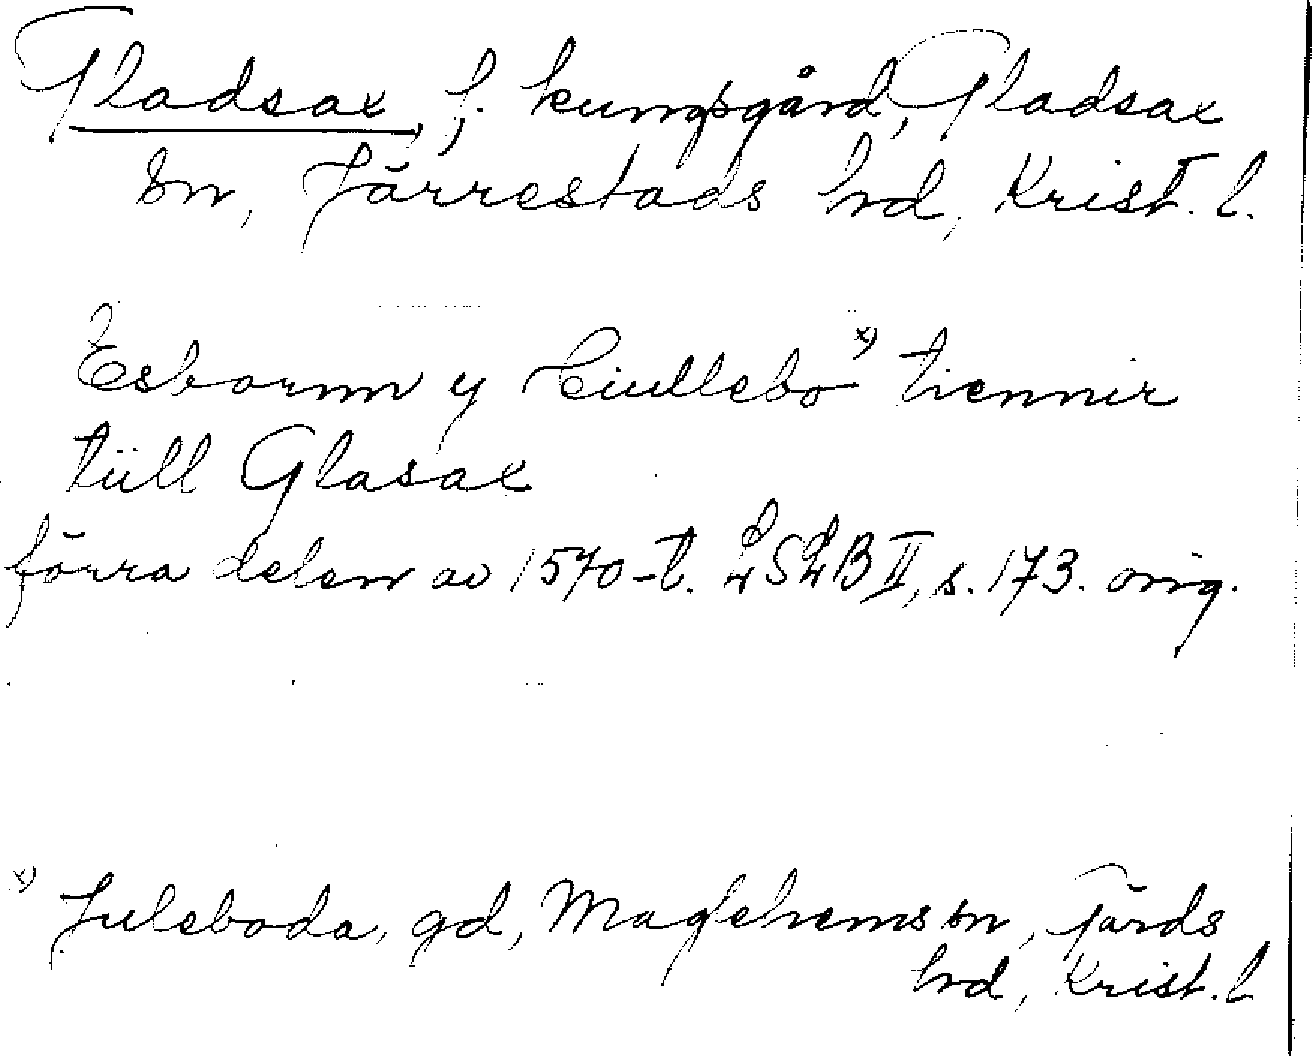 Gladsax, f. kungsgård, Gladsax
sn, Järrestads hd, Krist. l.
Esbornn y Liullebo x) tiennir
tüll Glasax
förra delen av 1570-t. LSLB II, s. 173. orig.
x) Juleboda, gd, Maglehems sn, Gärds
hd, Krist. l